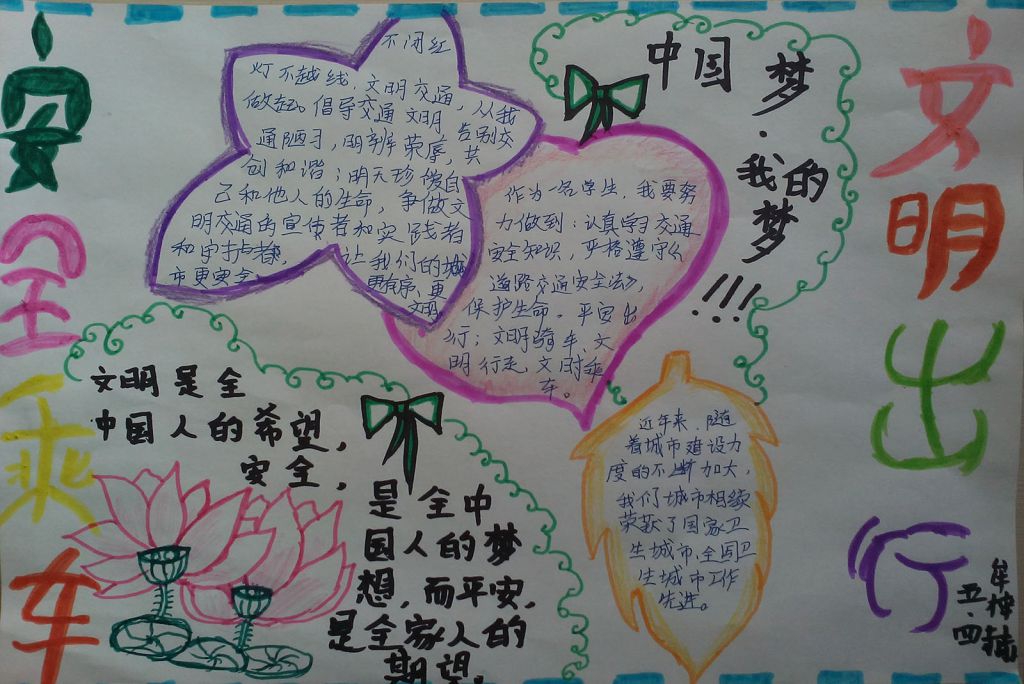 安全乘车
不闯红
灯不越线，文明交通，从我
做起。倡导交通文明，告别交
通陋习，明辨荣辱，共
创和谐；明天珍爱自
己和他人的生命，争做文
明交通的宣传者和实践者
和守护者，让我们的城
市更安全、更有序、更
文明。
中国梦·我的梦!!!
作为一名学生，我要努
力做到：认真学习交通
安全知识，严格遵守《
道路交通安全法》，
保护生命。平安出
行；文明骑车、文
明行走、文明乘
车。
文明是全
中国人的希望，
安全，
是全中
国人的梦
想，而平安，
是全家人的
期望。
近年来，随
着城市建设力
度的不断加大，
我们城市相继
荣获了国家卫
生城市、全国卫
生城市工作
先进。
文明出行
五·四